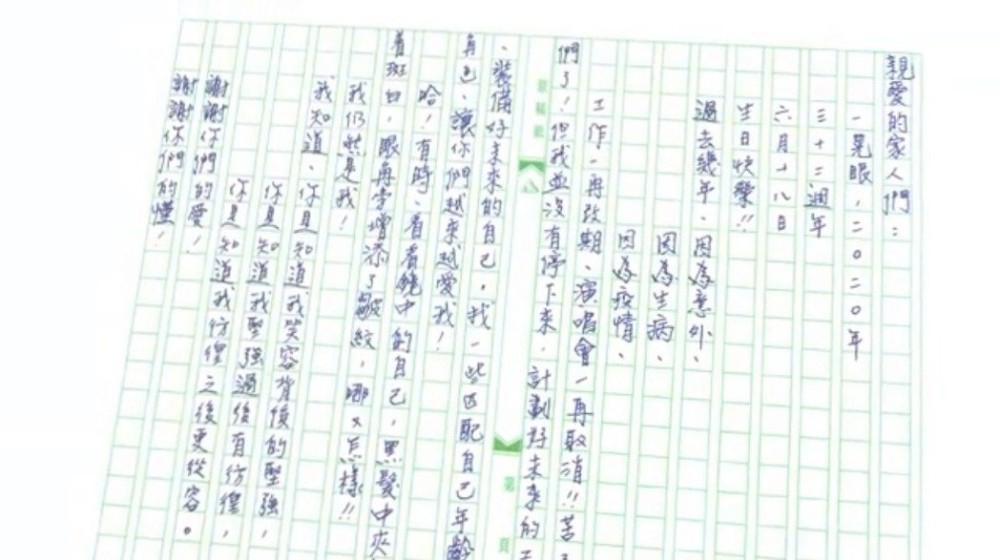 親愛的家人們：
一晃眼，二〇二〇年
三十二週年
六月十八日
生日快樂!!
過去幾年、因為意外、
因為生病、
因為疫情、
工作一再改期、演唱會一再取消!!苦了
們了！但我並沒有停下來，計劃好未來的工
、裝備好未來的自己，找一些匹配自己年齡
角色、讓你們越來越愛我！
哈！有時、看著鏡中的自己，黑髮中夾
着斑白，眼角孛增添了皺紋，哪又怎樣!!
我仍然是我！
我知道、你是知道我笑容背後的堅強，
你是知道我堅強過後有彷徨，
你是知道我彷徨之後更從容。
謝謝你們的愛！
謝謝你們的懂！
第 頁